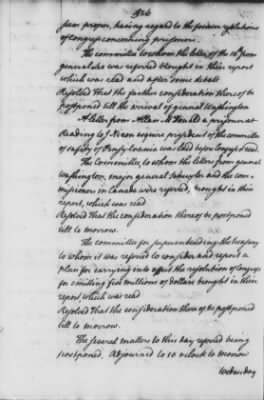 526
seem proper, having regard to the former resolutions
of congress concerning prisoners.
The committee to whom the letter of the 16th from
general Lee was refered brought in their report
which was read and after some debate
Resolved That the farther consideration thereof be
postponed till the arrival of general Washington
A letter from Allan McDonald a prisoner at
Reading to J Nixon esquire president of the committee
of safety of Pensylvania was laid before Congress & read.
The Committee to whom the letters from general
Washington, major general Schuyler and the com-
missioners in Canada were refered, brought in their
report, which was read
Resolved That the consideration thereof be postponed
till to morrow.
The committee for superintending the treasury
to whom it was refered to consider and report a
plan for carrying into effect the resolution of Congress
for emitting five millions of dollars brought in their
report, which was read
Resolved That the consideration thereof be postponed
till to morrow.
The several matters to this day refered being
postponed. Adjourned to 10 o'clock to morrow
Wednesday